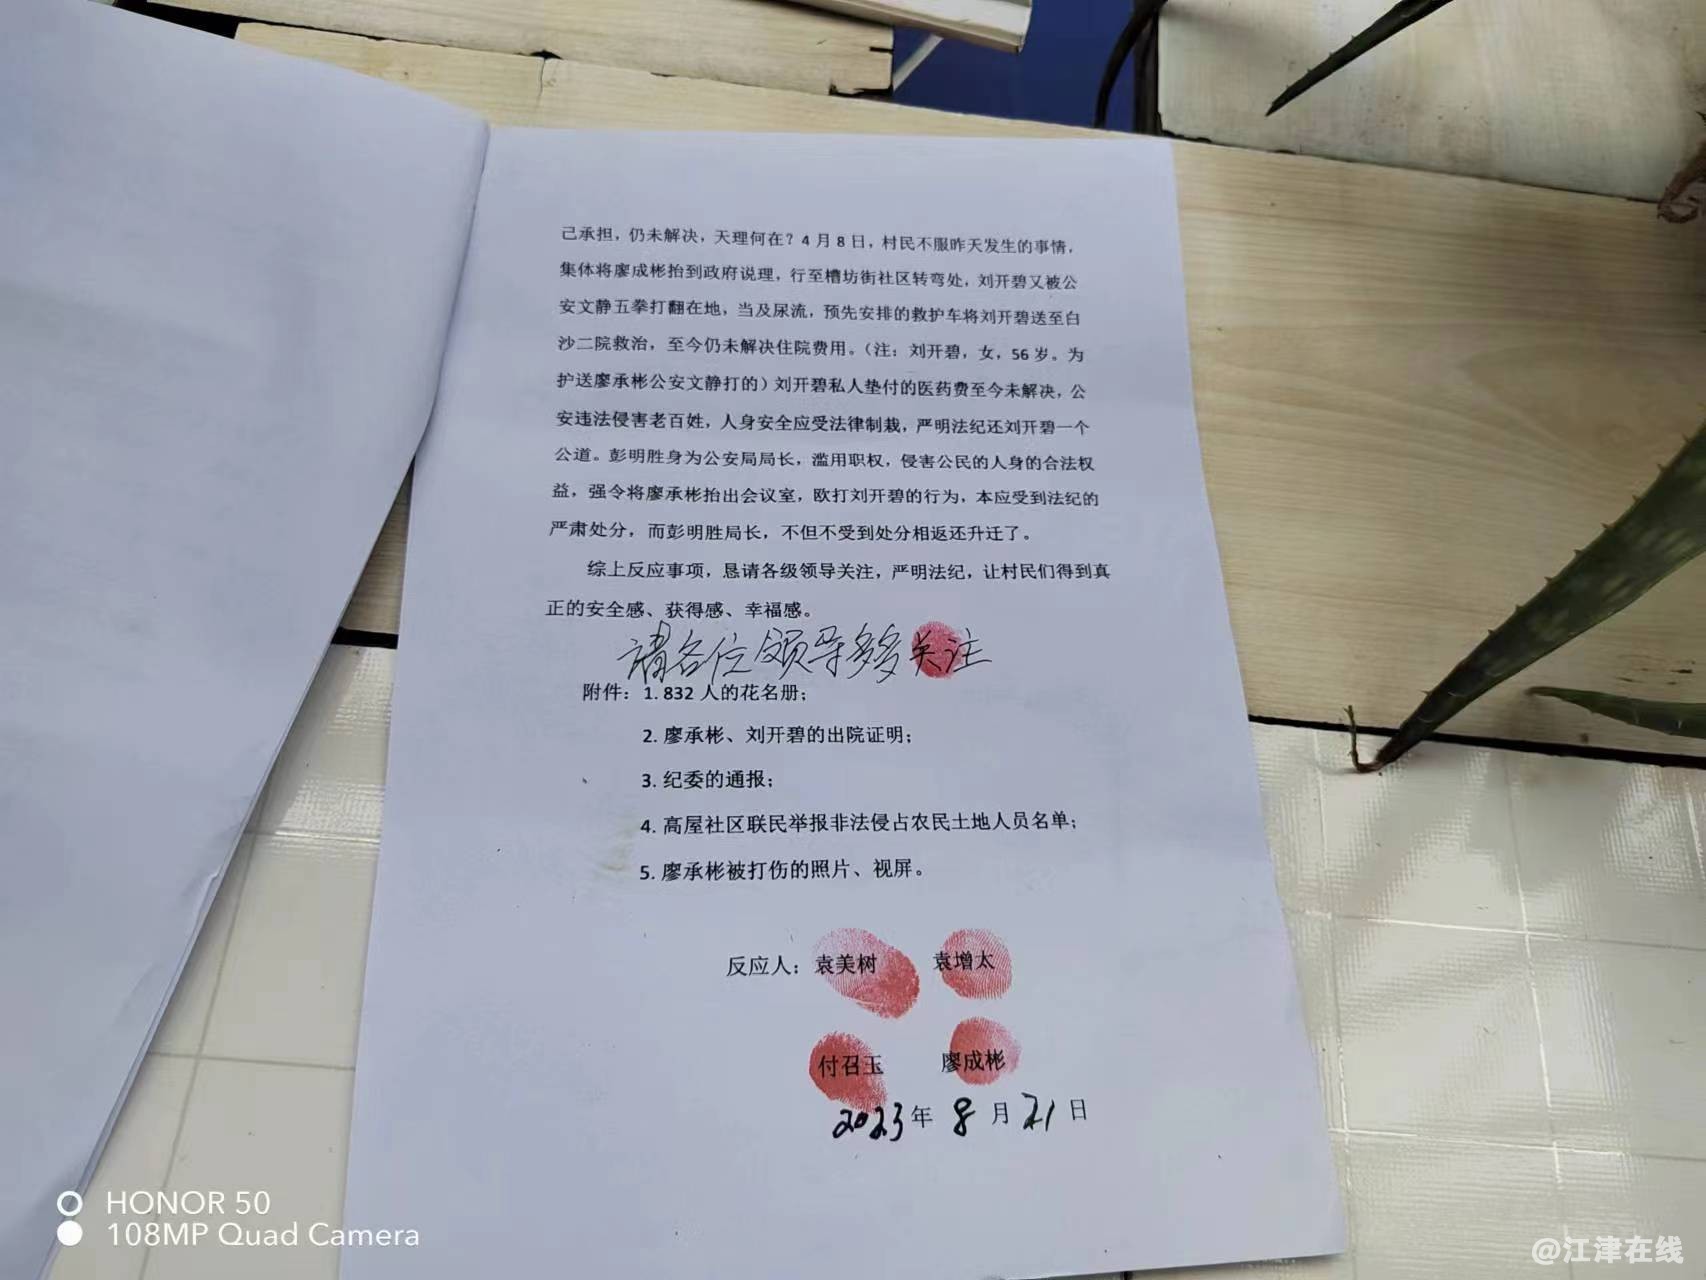 己承担，仍未解决，天理何在？4月8日，村民不服昨天发生的事情，
集体将廖成彬抬到政府说理，行至槽坊街社区转弯处，刘开碧又被公
安文静五拳打翻在地，当及尿流，预先安排的救护车将刘开碧送至白
沙二院救治，至今仍未解决住院费用。（注：刘开碧，女，56岁。为
护送廖承彬公安文静打的）刘开碧私人垫付的医药费至今未解决，公
安违法侵害老百姓，人身安全应受法律制栽，严明法纪还刘开碧一个
公道。彭明胜身为公安局局长，滥用职权，侵害公民的人身的合法权
益，强令将廖承彬抬出会议室，欧打刘开碧的行为，本应受到法纪的
严肃处分，而彭明胜局长，不但不受到处分相返还升迁了。
综上反应事项，恳请各级领导关注，严明法纪，让村民们得到真
正的安全感、获得感、幸福感。
请各位领导多多关注
附件：1. 832人的花名册；
2. 廖承彬、刘开碧的出院证明；
3. 纪委的通报；
4. 高屋社区联民举报非法侵占农民土地人员名单；
5. 廖承彬被打伤的照片、视屏。
反应人：袁美树 袁增太
付召玉 廖成彬
2023年8月21日
HONOR 50
108MP Quad Camera
@江津在线